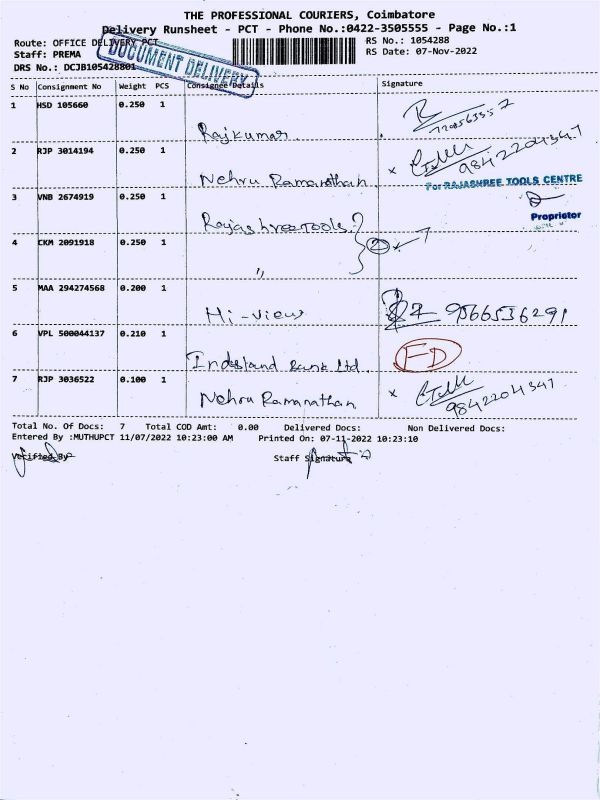 THE PROFESSIONAL COURIERS, Coimbatore
Delivery Runsheet - PCT - Phone No.:0422-3505555 - Page No.:1
Route: OFFICE DELIVERY PCT
RS No.: 1054288
Staff: PREMA
RS Date: 07-Nov-2022
DRS No.: DCJB105428801
DOCUMENT DELIVERY
S No Consignment No Weight PCS Consignee Details Signature
1 HSD 105660 0.250 1
Rajkumar
2 RJP 3014194 0.250 1
Nehru Ramanathan x 9842204347
For RAJASHREE TOOLS CENTRE
3 VNB 2674919 0.250 1
Proprietor
Rajashree Tools
4 CKM 2091918 0.250 1
2
"
5 MAA 294274568 0.200 1
Hi-View 9566536291
6 VPL 500044137 0.210 1
IndusInd Bank Ltd. FD
7 RJP 3036522 0.100 1
Nehru Ramanathan x 9842204347
Total No. Of Docs: 7 Total COD Amt: 0.00 Delivered Docs: Non Delivered Docs:
Entered By :MUTHUPCT 11/07/2022 10:23:00 AM Printed On: 07-11-2022 10:23:10
Verified By Staff Signature